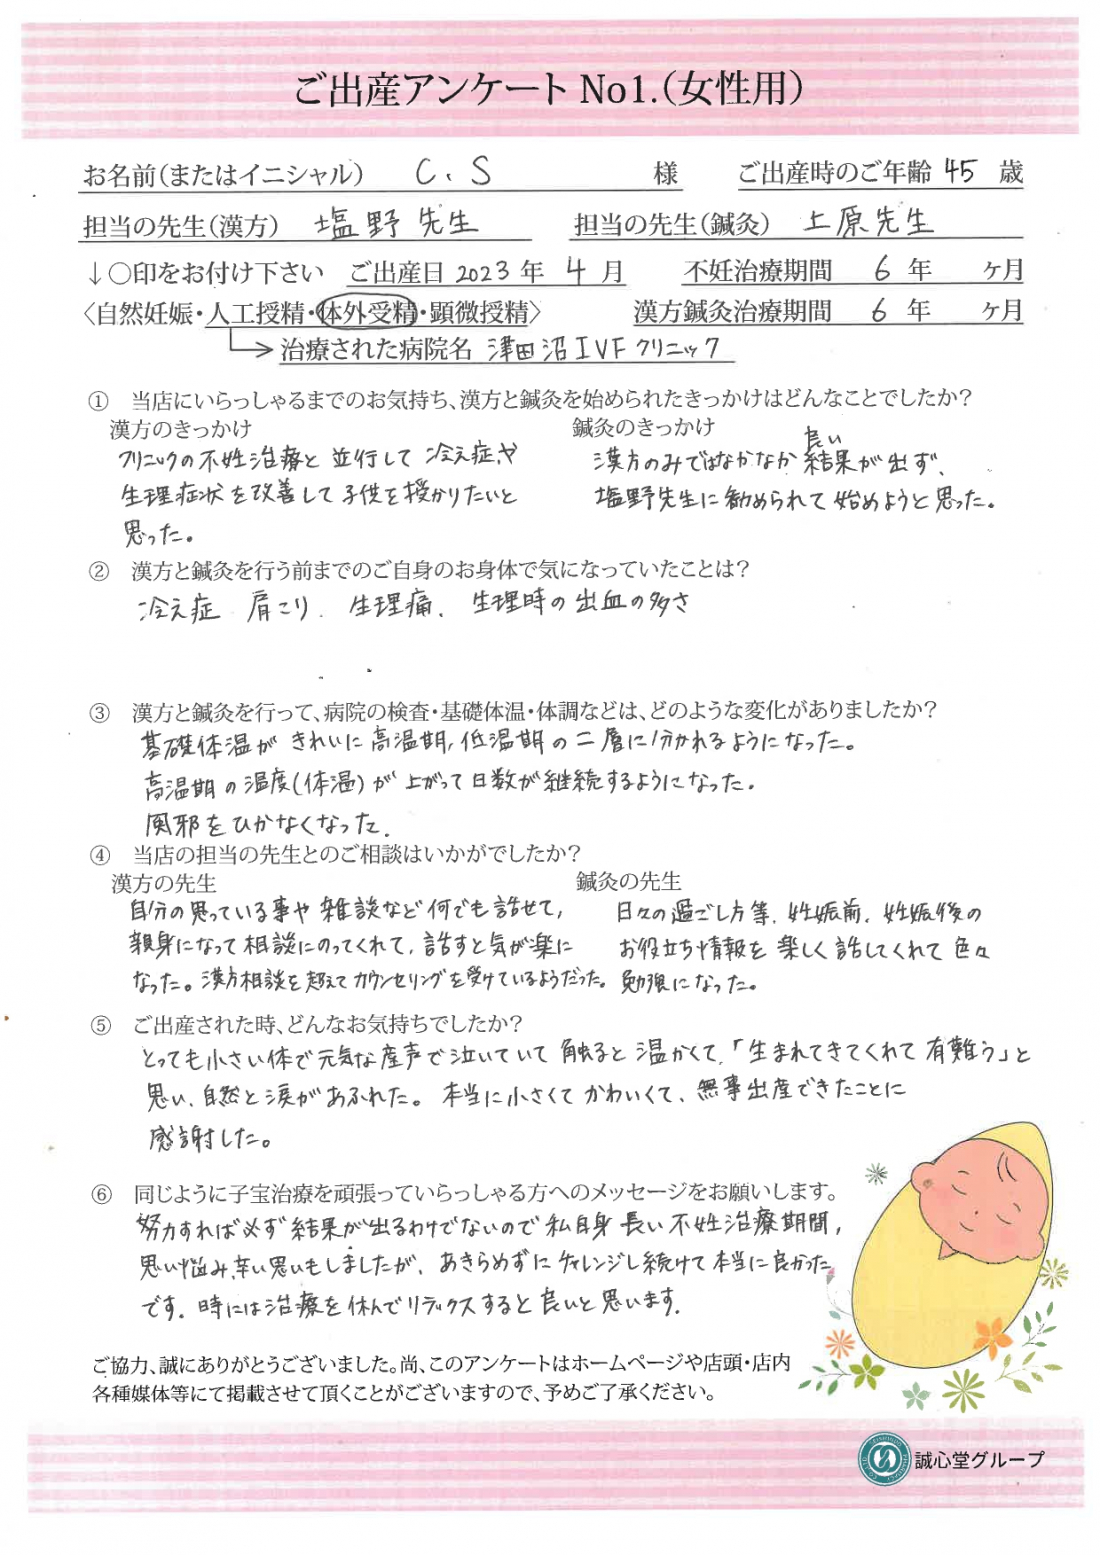 ご出産アンケート No1.(女性用)
お名前(またはイニシャル) C、S 様 ご出産時のご年齢 45 歳
担当の先生(漢方) 塩野先生 担当の先生(鍼灸) 上原先生
↓○印をお付け下さい ご出産日 2023 年 4 月 不妊治療期間 6 年 ヶ月
〈自然妊娠・人工授精・体外受精・顕微授精〉 漢方鍼灸治療期間 6 年 ヶ月
治療された病院名 津田沼IVFクリニック
① 当店にいらっしゃるまでのお気持ち、漢方と鍼灸を始められたきっかけはどんなことでしたか?
漢方のきっかけ
クリニックの不妊治療と並行して冷え症や
生理症状を改善して子供を授かりたいと
思った。
鍼灸のきっかけ
漢方のみではなかなか良い結果が出ず、
塩野先生に勧められて始めようと思った。
② 漢方と鍼灸を行う前までのご自身のお身体で気になっていたことは?
冷え症 肩こり、生理痛、生理時の出血の多さ
③ 漢方と鍼灸を行って、病院の検査・基礎体温・体調などは、どのような変化がありましたか?
基礎体温がきれいに高温期,低温期の二層に分かれるようになった。
高温期の温度(体温)が上がって日数が継続するようになった。
風邪をひかなくなった.
④ 当店の担当の先生とのご相談はいかがでしたか?
漢方の先生
自分の思っている事や雑談など何でも話せて,
親身になって相談にのってくれて、話すと気が楽に
なった。漢方相談を超えてカウンセリングを受けているようだった。
鍼灸の先生
日々の過ごし方等、妊娠前、妊娠後の
お役立ち情報を楽しく話してくれて色々
勉強になった。
⑤ ご出産された時、どんなお気持ちでしたか?
とっても小さい体で元気な産声で泣いていて触ると温かくて、「生まれてきてくれて有難う」と
思い、自然と涙があふれた。本当に小さくてかわいくて、無事出産できたことに
感謝した。
⑥ 同じように子宝治療を頑張っていらっしゃる方へのメッセージをお願いします。
努力すれば必ず結果が出るわけでないので私自身長い不妊治療期間,
思い悩み、辛い思いもしましたが、あきらめずにチャレンジし続けて本当に良かった
です. 時には治療を休んでリラックスすると良いと思います.
ご協力、誠にありがとうございました。尚、このアンケートはホームページや店頭・店内
各種媒体等にて掲載させて頂くことがございますので、予めご了承ください。
誠心堂グループ